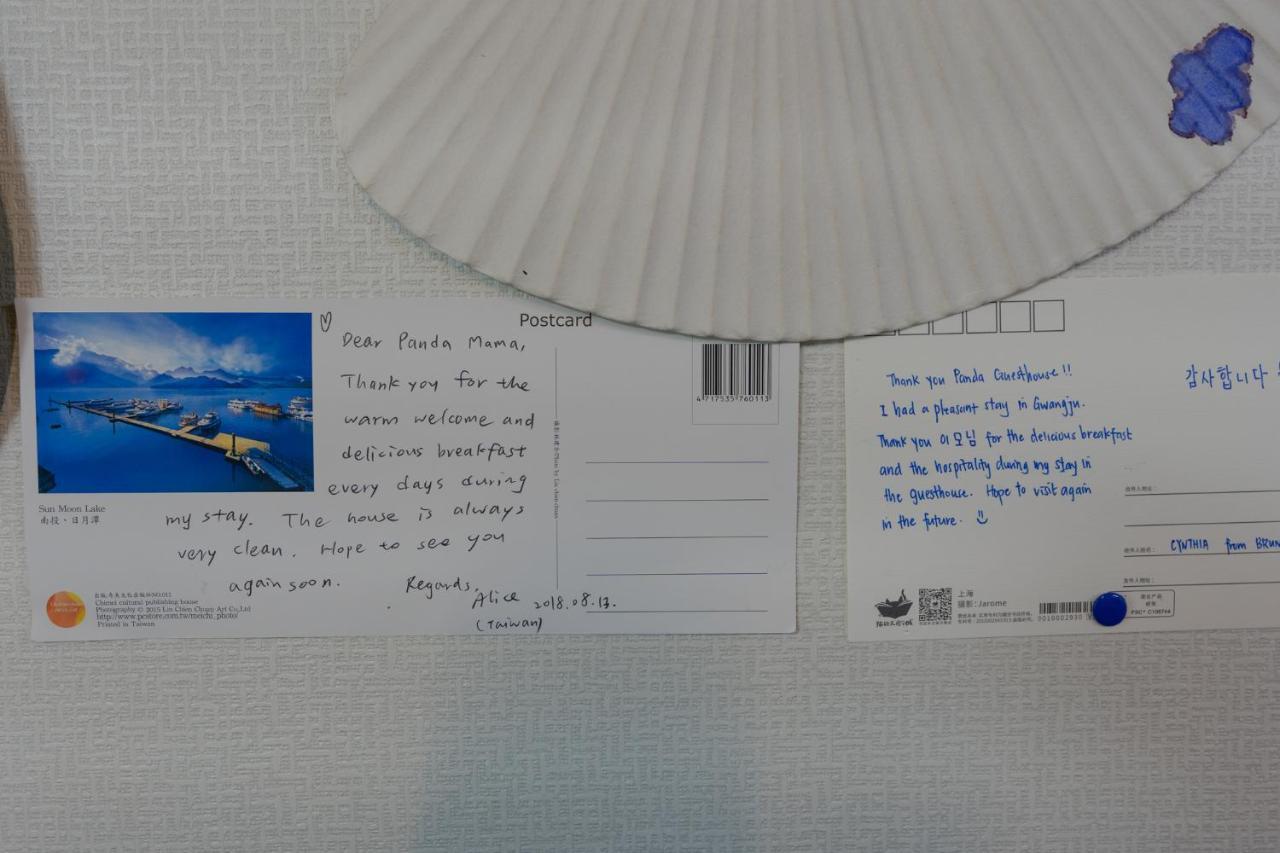 Postcard
♡
Dear Panda Mama,
Thank you for the
warm welcome and
delicious breakfast
every days during
my stay. The house is always
very clean. Hope to see you
again soon.
Regards,
Alice 2018.08.13.
(Taiwan)
4 717535 760113
Sun Moon Lake
南投、日月潭
Chimei cultural publishing house
Photography © 2015 Lin Chien Chuan Art Co,Ltd
Printed in Taiwan
Thank you Panda Guesthouse!!
I had a pleasant stay in Gwangju.
Thank you 이모님 for the delicious breakfast
and the hospitality during my stay in
the guesthouse. Hope to visit again
in the future. ☺
감사합니다
CYNTHIA from BRUN
上海
摄影:Jarome